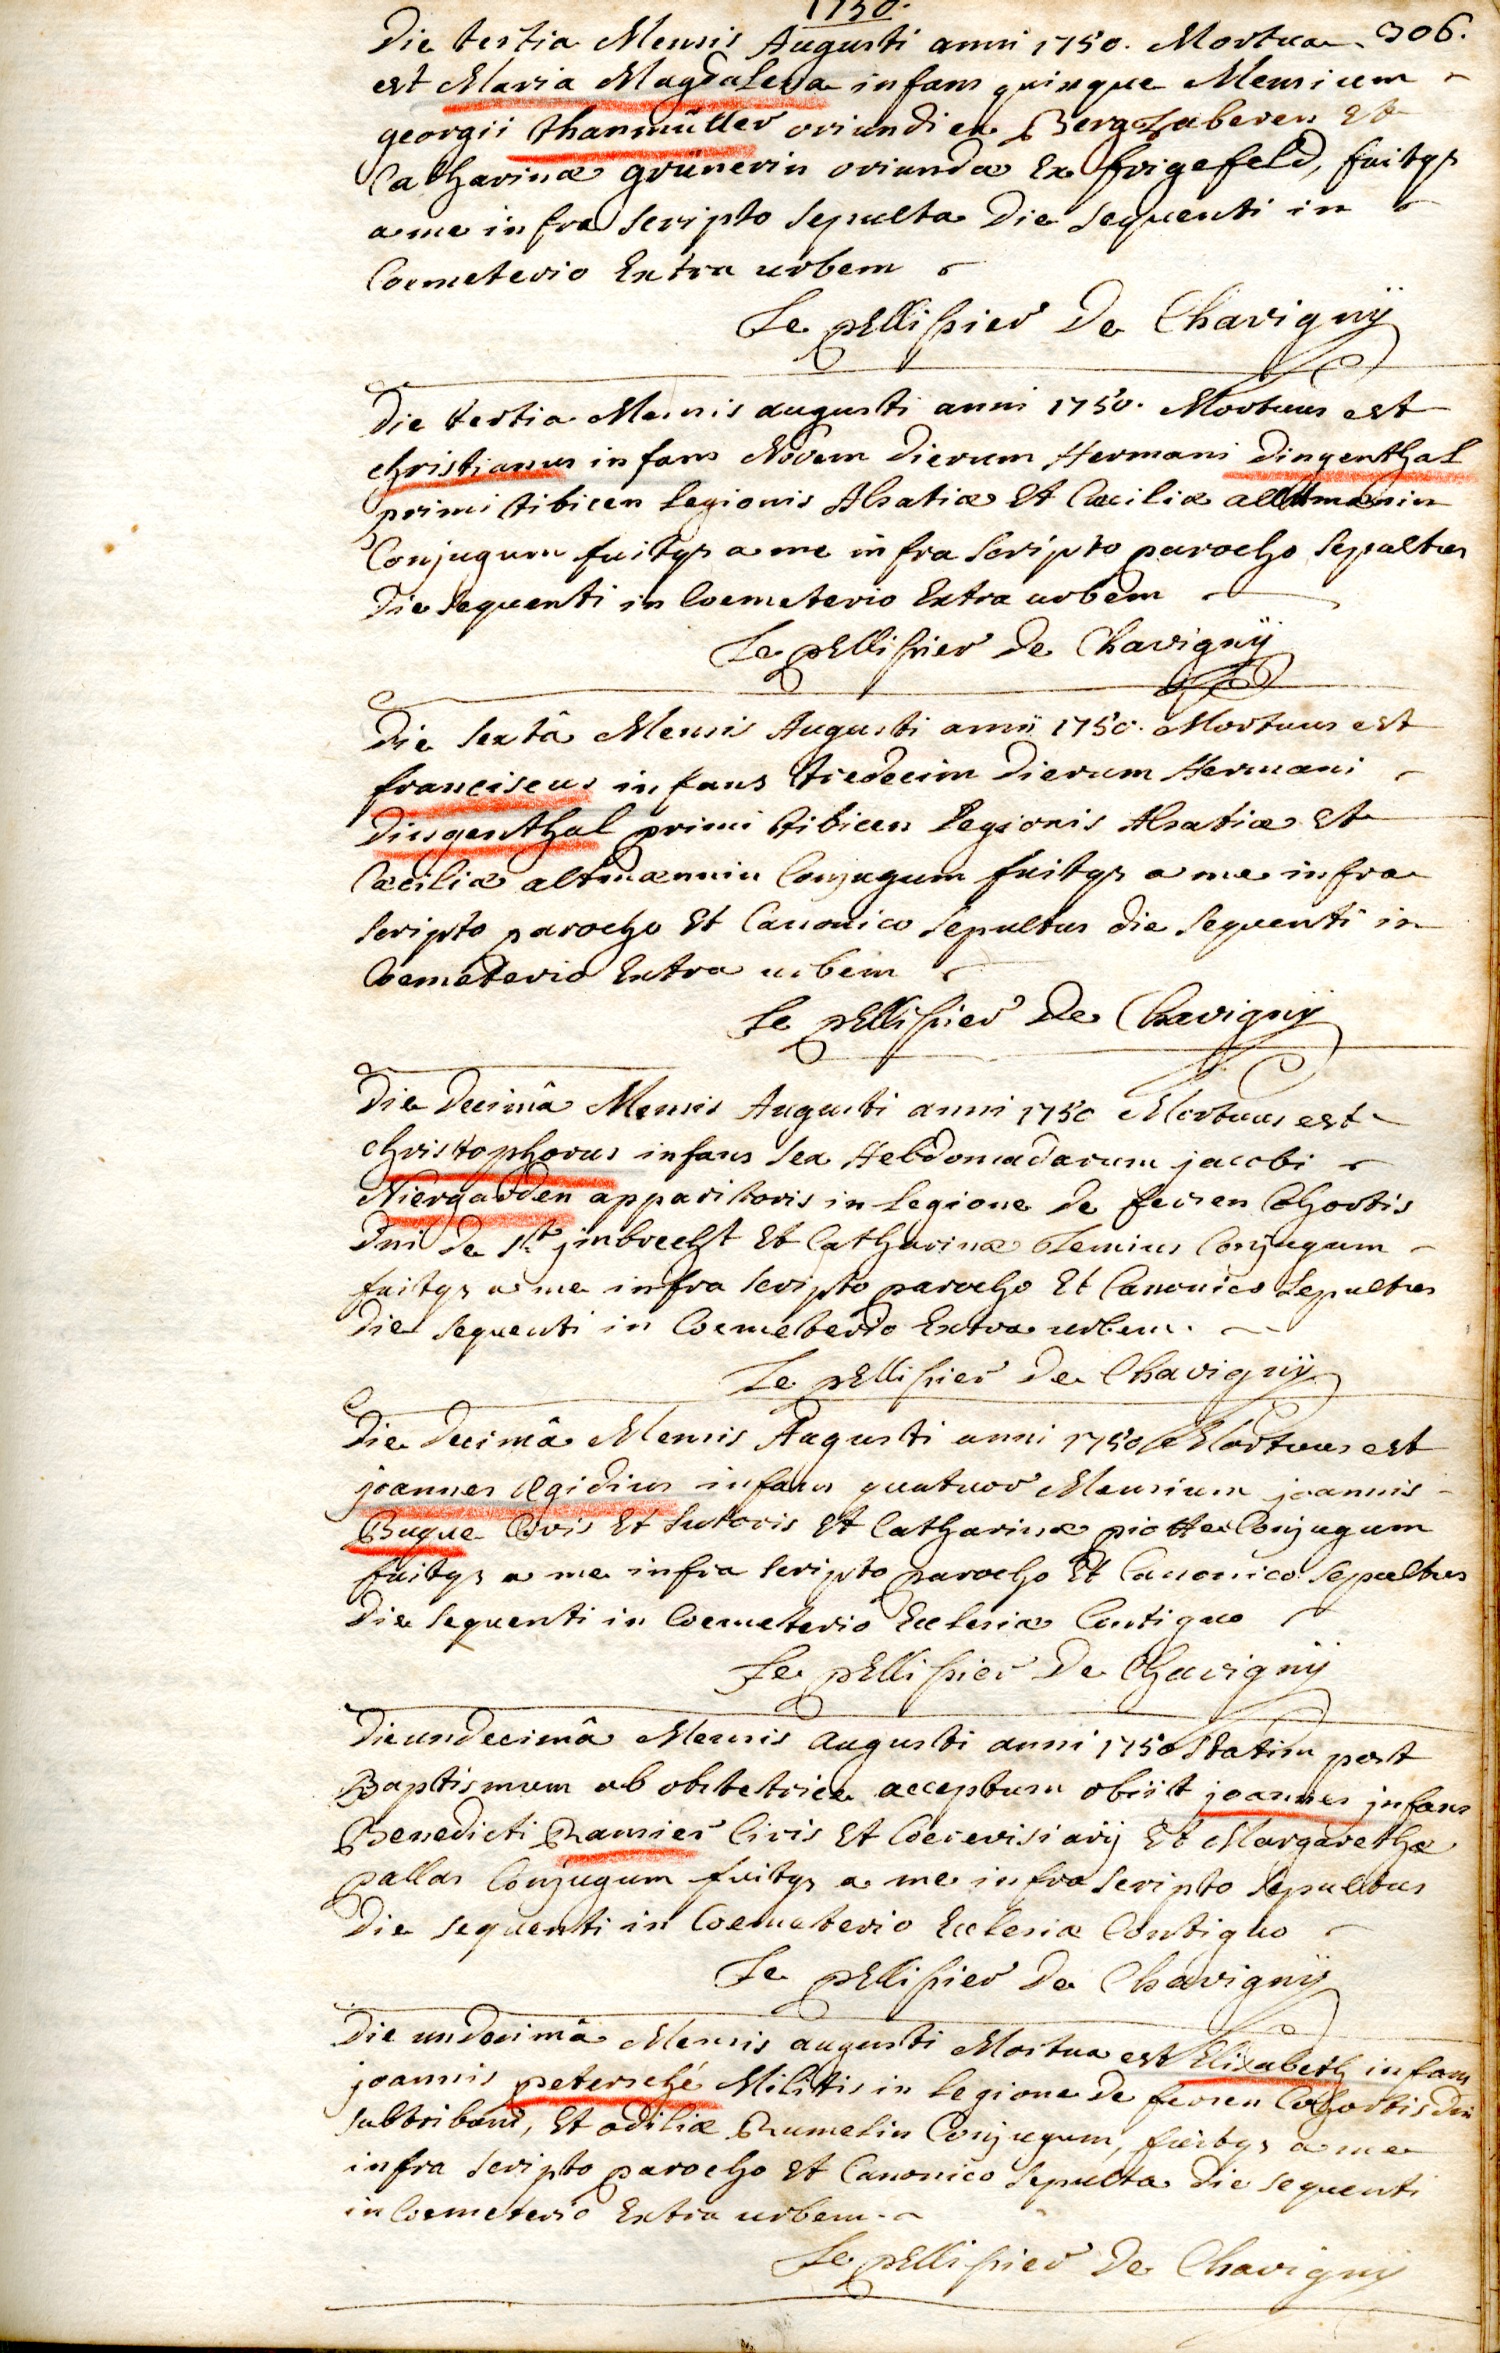 1750.
306.
Die tertia Mensis Augusti anni 1750. Mortua
est Maria Magdalena infans quinque Mensium
georgii thanmüller oriundi ex Bergzaberen Et
Catharinæ grünerin oriundæ Ex frigefeld, fuitqs
a me infra scripto sepulta Die sequenti in
Coemeterio Extra urbem
Le pellissier De Chavignÿ
Die tertia Mensis augusti anni 1750. Mortuus est
christianus infans Novem Dierum Hermani Dingenthal
primi tibicen Legionis Alsatiæ Et Cæciliæ
Conjugum fuitqs a me infra scripto parocho sepultus
Die sequenti in Coemeterio Extra urbem
Le pellissier De Chavignÿ
Die sextâ Mensis Augusti anni 1750. Mortuus est
franciscus infans tredecim Dierum Hermani
Dingenthal primi tibicen Legionis Alsatiæ Et
Cæciliæ altmænnin Conjugum fuitqs a me infra
scripto parocho Et Canonico sepultus die sequenti in
Coemeterio Extra urbem
Le pellissier De Chavignÿ
Die Decimâ Mensis Augusti anni 1750 Mortuus est
christophorus infans sex Hebdomadarum jacobi
Niergarden apparitoris in Legione de fersen Cohortis
Dni de St jmbrecht Et Catharinæ Conjugum
fuitqs a me infra scripto parocho Et Canonico sepultus
Die sequenti in Coemeterio Extra urbem.
Le pellissier De Chavignÿ
Die Decimâ Mensis Augusti anni 1750 Mortuus est
joannes Ægidius infans quatuor Mensium joannis
Buque Civis Et sutoris Et Catharinæ piotte Conjugum
fuitqs a me infra scripto parocho Et Canonico sepultus
Die sequenti in Coemeterio Ecclesiæ Contiguo
Le pellissier De Chavignÿ
Die undecimâ Mensis augusti anni 1750 statim post
Baptismum ab obstetrice acceptum obiit joannes infans
Benedicti Ramier Civis Et Coerevisiarij Et Margarethæ
pallas Conjugum fuitqs a me infra scripto sepultus
Die sequenti in Coemeterio Ecclesiæ Contiguo
Le pellissier De Chavignÿ
Die undecimâ Mensis augusti Mortua est Elisabeth infans
joannis petersché Militis in Legione De fersen Cohortis Dni
subtribani, Et odiliæ Rumelin Conjugum, fuitqs a me
infra scripto parocho Et Canonico sepulta Die sequenti
in Coemeterio Extra urbem.
Le pellissier De Chavignÿ